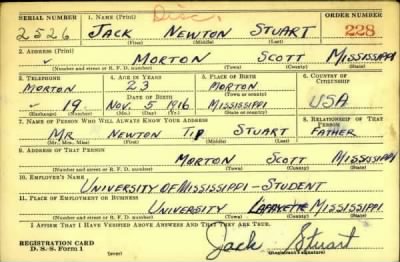 SERIAL NUMBER 1. NAME (Print) Disc. ORDER NUMBER
2526 JACK NEWTON STUART 228
(First) (Middle) (Last)
2. ADDRESS (Print)
✓ MORTON SCOTT MISSISSIPPI
(Number and street or R. F. D. number) (Town) (County) (State)
3. TELEPHONE 4. AGE IN YEARS 5. PLACE OF BIRTH 6. COUNTRY OF CITIZENSHIP
MORTON 23 MORTON
DATE OF BIRTH (Town or county)
✓ 19 NOV. 5 1916 MISSISSIPPI USA
(Exchange) (Number) (Mo.) (Day) (Yr.) (State or country)
7. NAME OF PERSON WHO WILL ALWAYS KNOW YOUR ADDRESS 8. RELATIONSHIP OF THAT PERSON
MR NEWTON TIP STUART FATHER
(Mr., Mrs., Miss) (First) (Middle) (Last)
9. ADDRESS OF THAT PERSON
MORTON SCOTT MISSISSIPPI
(Number and street or R. F. D. number) (Town) (County) (State)
10. EMPLOYER'S NAME
UNIVERSITY OF MISSISSIPPI - STUDENT
11. PLACE OF EMPLOYMENT OR BUSINESS
UNIVERSITY LAFAYETTE MISSISSIPPI
(Number and street or R. F. D. number) (Town) (County) (State)
I AFFIRM THAT I HAVE VERIFIED ABOVE ANSWERS AND THAT THEY ARE TRUE.
REGISTRATION CARD
D. S. S. Form 1 (over) Jack Stuart
(Registrant's signature)